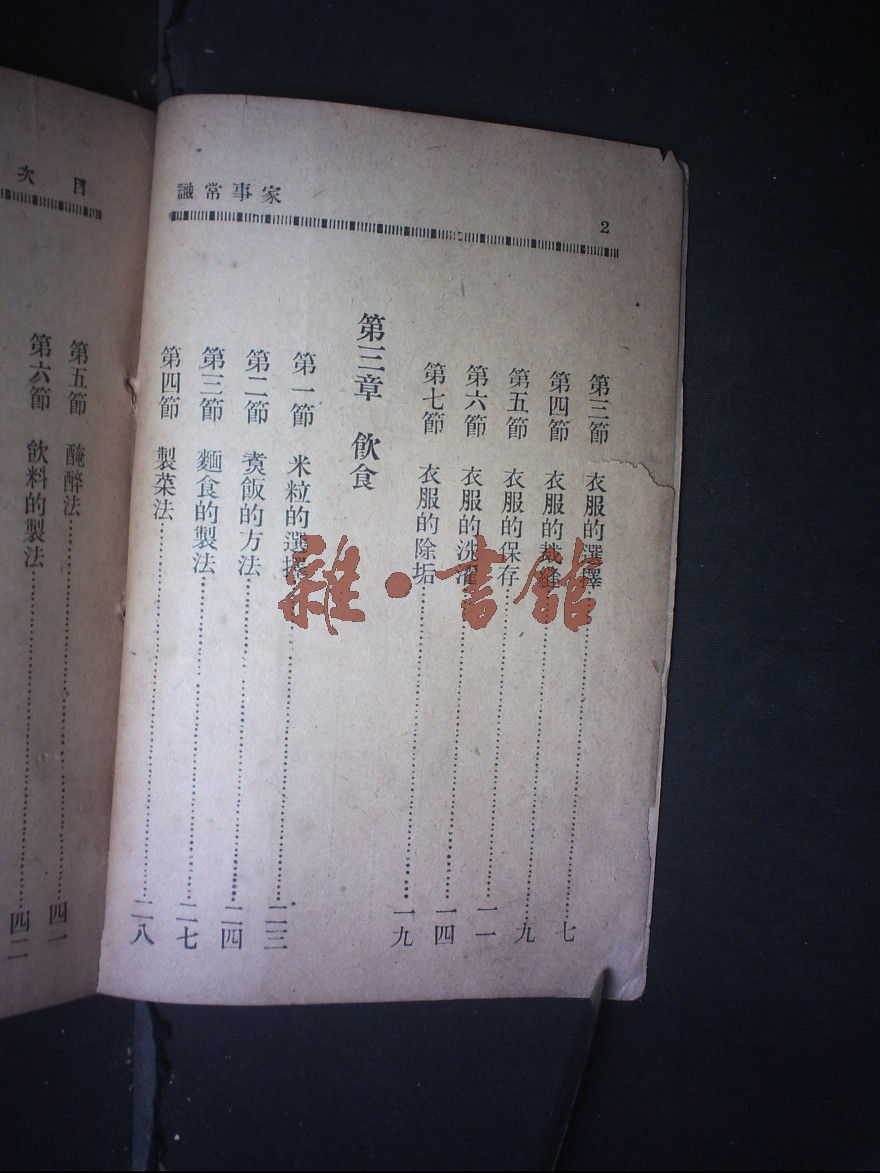 家事常識
2
第三節 衣服的選擇……七
第四節 衣服的裁縫……九
第五節 衣服的保存……一一
第六節 衣服的洗濯……一四
第七節 衣服的除垢……一九
第三章 飲食
第一節 米粒的選擇……二三
第二節 煑飯的方法……二四
第三節 麵食的製法……二七
第四節 製菜法……二八
目次
第五節 醃醉法……四一
第六節 飲料的製法……四二
雜·書館